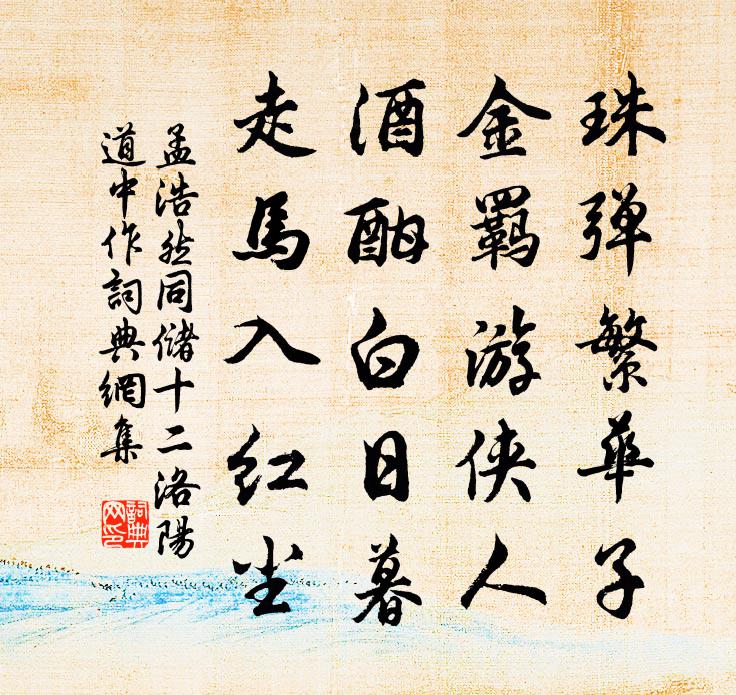 珠弹繁華子
金羈游俠人
酒酣白日暮
走馬入红尘
孟浩然同儲十二洛陽
道中作詞典網集
詞典
网印